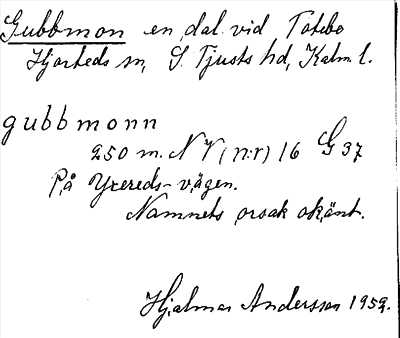 Gubbmon en dal vid Totebo
Hjorteds sn, S. Tjusts hd, Kalm. l.
gubbmonn
250 m. NV (n:r) 16 G 37
På Yxereds-vägen.
Namnets orsak okänt.
Hjalmar Andersson 1952.